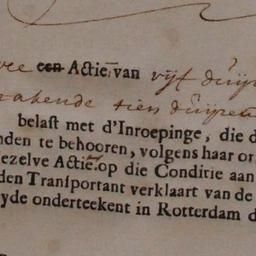 een Actie van vijf duijse
rakende tien duijsen
belast met d'Inroepinge, die d
nden te behooren, volgens haar or
ezelve Actie op die Conditie aan
den Transportant verklaart van de
yde onderteekent in Rotterdam d